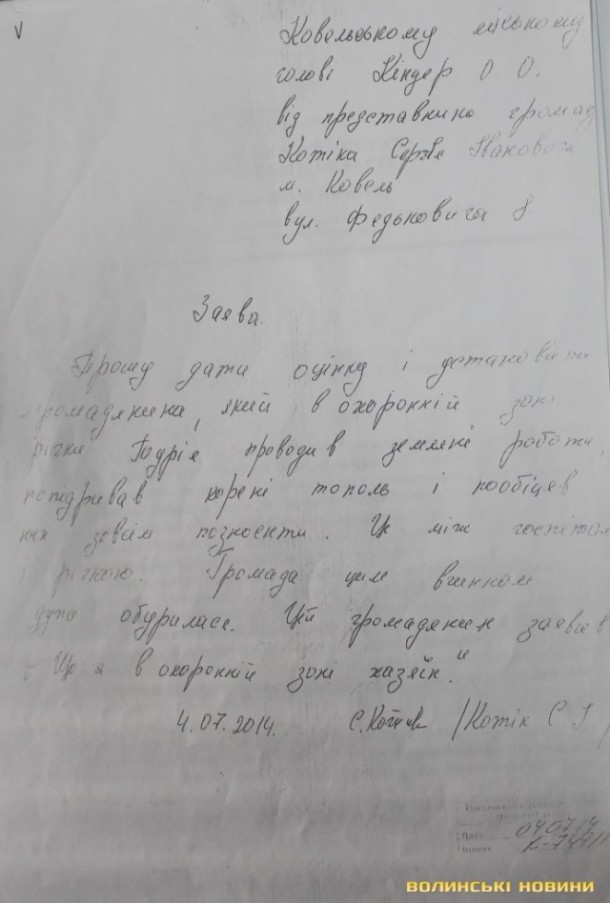 V
Ковельському міському
голові Кіндер О. О.
від представника громад
Котіка Сергія Івановича
м. Ковель
вул. Федьковича 8
Заява.
Прошу дати оцінку і установити
громадянина, який в охоронній зоні
річки Турія проводив земляні роботи,
попідривав корені тополь і пообіцяв
їх зовсім познести. Це між госпіталем
і річкою. Громада цим вчинком
дуже обурилася. Цей громадянин заявив
- Що я в охоронній зоні хазяїн."
4.07.2014. С.Котік /Котік С І
Дата 04 07 14
Індекс К-747/1
ВОЛИНСЬКІ НОВИНИ